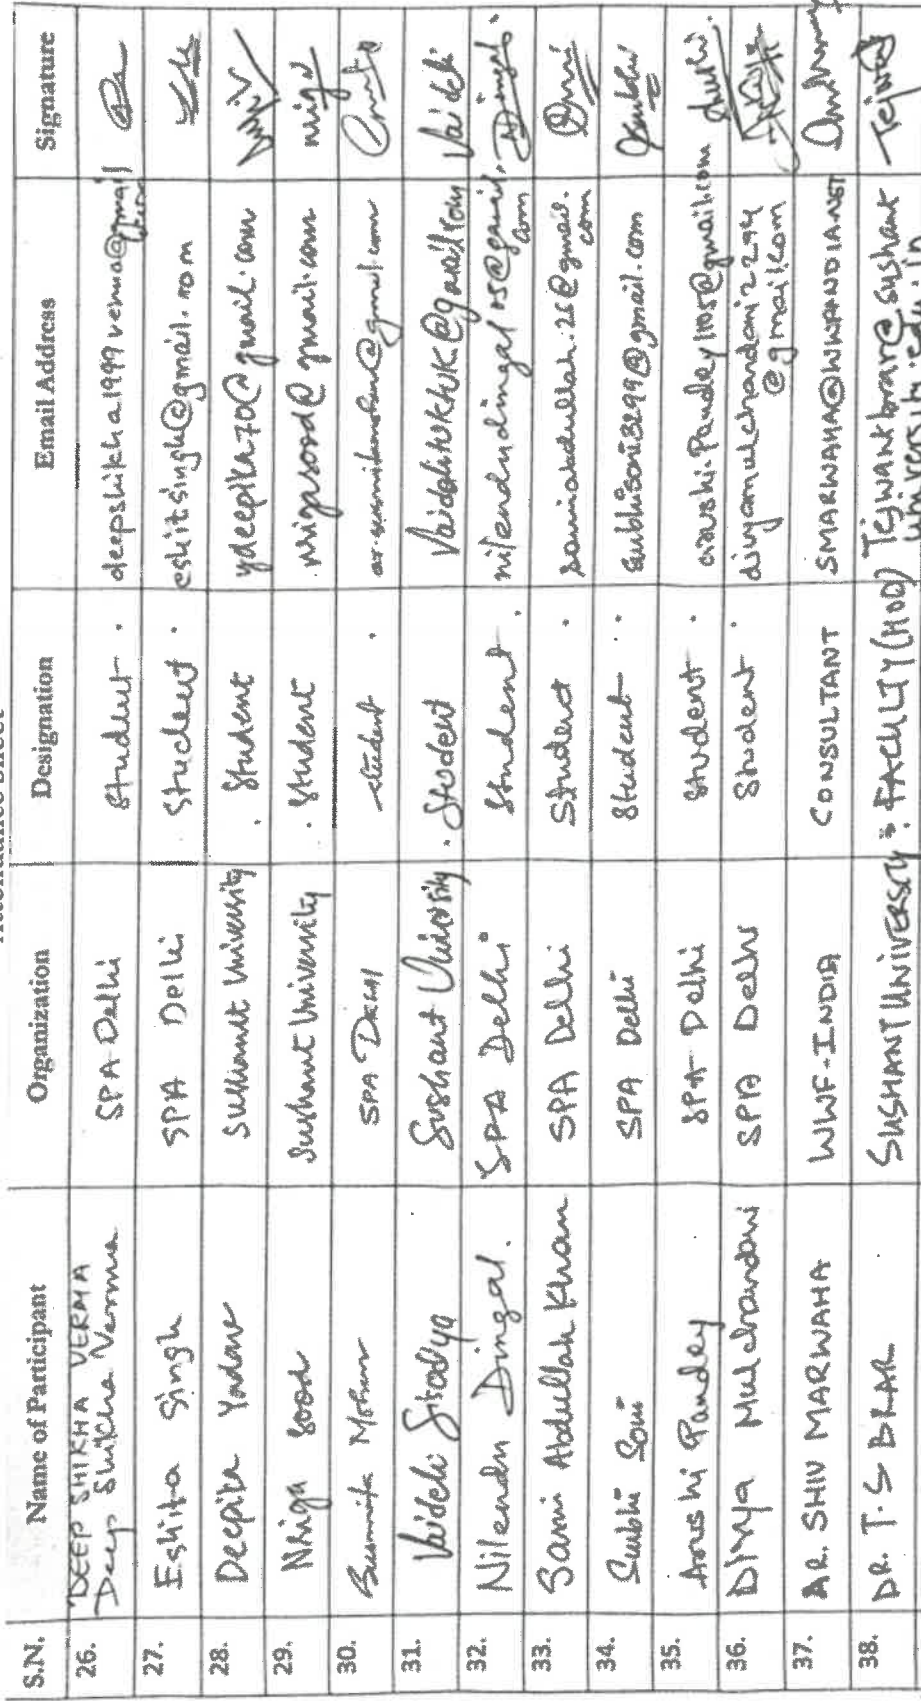 Attendance Sheet
S.N. Name of Participant Organization Designation Email Address Signature
26. DEEP SHIKHA VERMA SPA Delhi Student deepshikha1999verma@gmail
Deep Shikha Verma
27. Eshita Singh SPA Delhi Student eshitsingh@gmail.com
28. Deepika Yadav Sushant University Student ydeepika70@gmail.com
29. Nriga Sood Sushant University Student nrigasood@gmail.com nriga
30. Susmita Mohan SPA DELHI student
31. Vaideki Sisodiya Sushant University Student Vaideki
32. Nilendu Dingal. SPA Delhi Student nilendudingal05@gmail. Dingal
com
33. Sami Abdullah Khan SPA Delhi Student samiabdullah.26@gmail.
com
34. Surbhi Soni SPA Delhi Student surbhisoni3299@gmail.com Surbhi
35. Arushi Pandey SPA Delhi Student arushi.Pandey1105@gmail.com
36. Divya Mulchandani SPA Delhi Student divyamulchandani2294
@gmail.com
37. AR. SHIV MARWAHA WWF-INDIA CONSULTANT SMARWAHA@WWFINDIA.NET
38. DR. T.S BRAR SUSHANT UNIVERSITY FACULTY (HOD) Tejwantbrar@sushant
university.edu.in